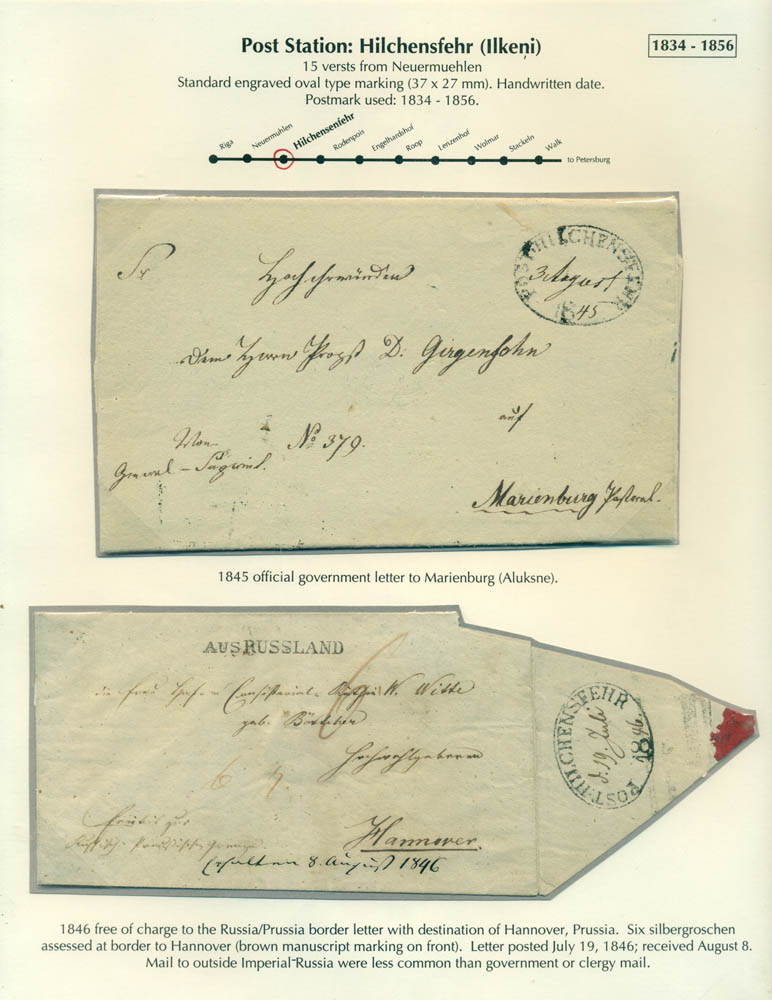 Post Station: Hilchensfehr (Ilkeņi)
1834 - 1856
15 versts from Neuermuehlen
Standard engraved oval type marking (37 x 27 mm). Handwritten date.
Postmark used: 1834 - 1856.
Riga
Neuermuhlen
Hilchensenfehr
Rodenpois
Engelhardshof
Roop
Lenzenhof
Wolmar
Stackeln
Walk
to Petersburg
POST:HILCHENSFEHR
3 August
1845
Sr Hochehrwürden
dem Herrn Propst D. Girgensohn
auf
Von No 379.
General-
Marienburg Pastorat.
1845 official government letter to Marienburg (Aluksne).
AUS RUSSLAND
die Frau W. Witte
geb.
Hochwohlgeboren
6
Hannover.
Erhalten 8. August 1846
POST:HILCHENSFEHR
d. 19. Juli
1846.
1846 free of charge to the Russia/Prussia border letter with destination of Hannover, Prussia. Six silbergroschen
assessed at border to Hannover (brown manuscript marking on front). Letter posted July 19, 1846; received August 8.
Mail to outside Imperial Russia were less common than government or clergy mail.